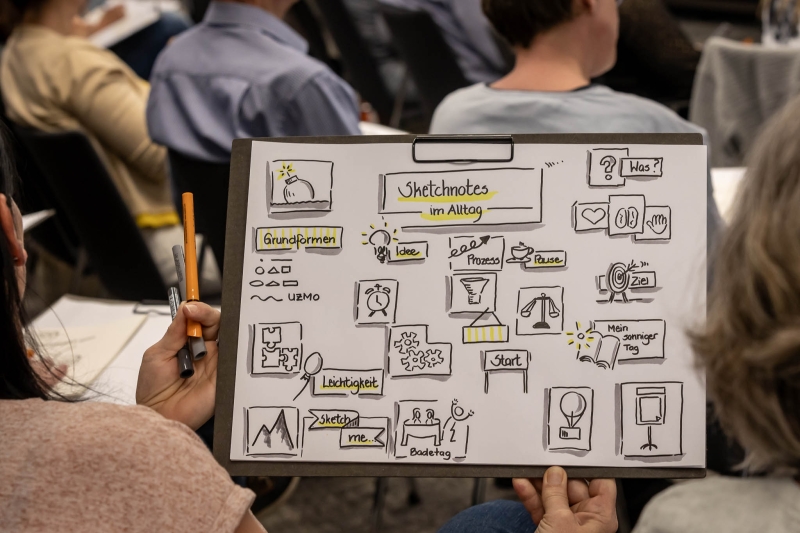 Sketchnotes
im Alltag
?
Was?
Grundformen
Idee
Prozess
Pause
UZMO
Ziel
Mein
sonniger
Tag
Start
Leichtigkeit
Sketch
me...
Badetag